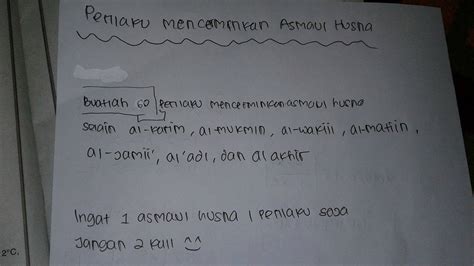 Perilaku mencerminkan Asmaul Husna
Buatlah 60 perilaku mencerminkan asmaul husna
selain al-karim, al-mukmin, al-wakiil, al-matiin,
al-jamii', al'adl, dan al akhir
Ingat 1 asmaul husna 1 perilaku saja
Jangan 2 kali ^^
2°C.